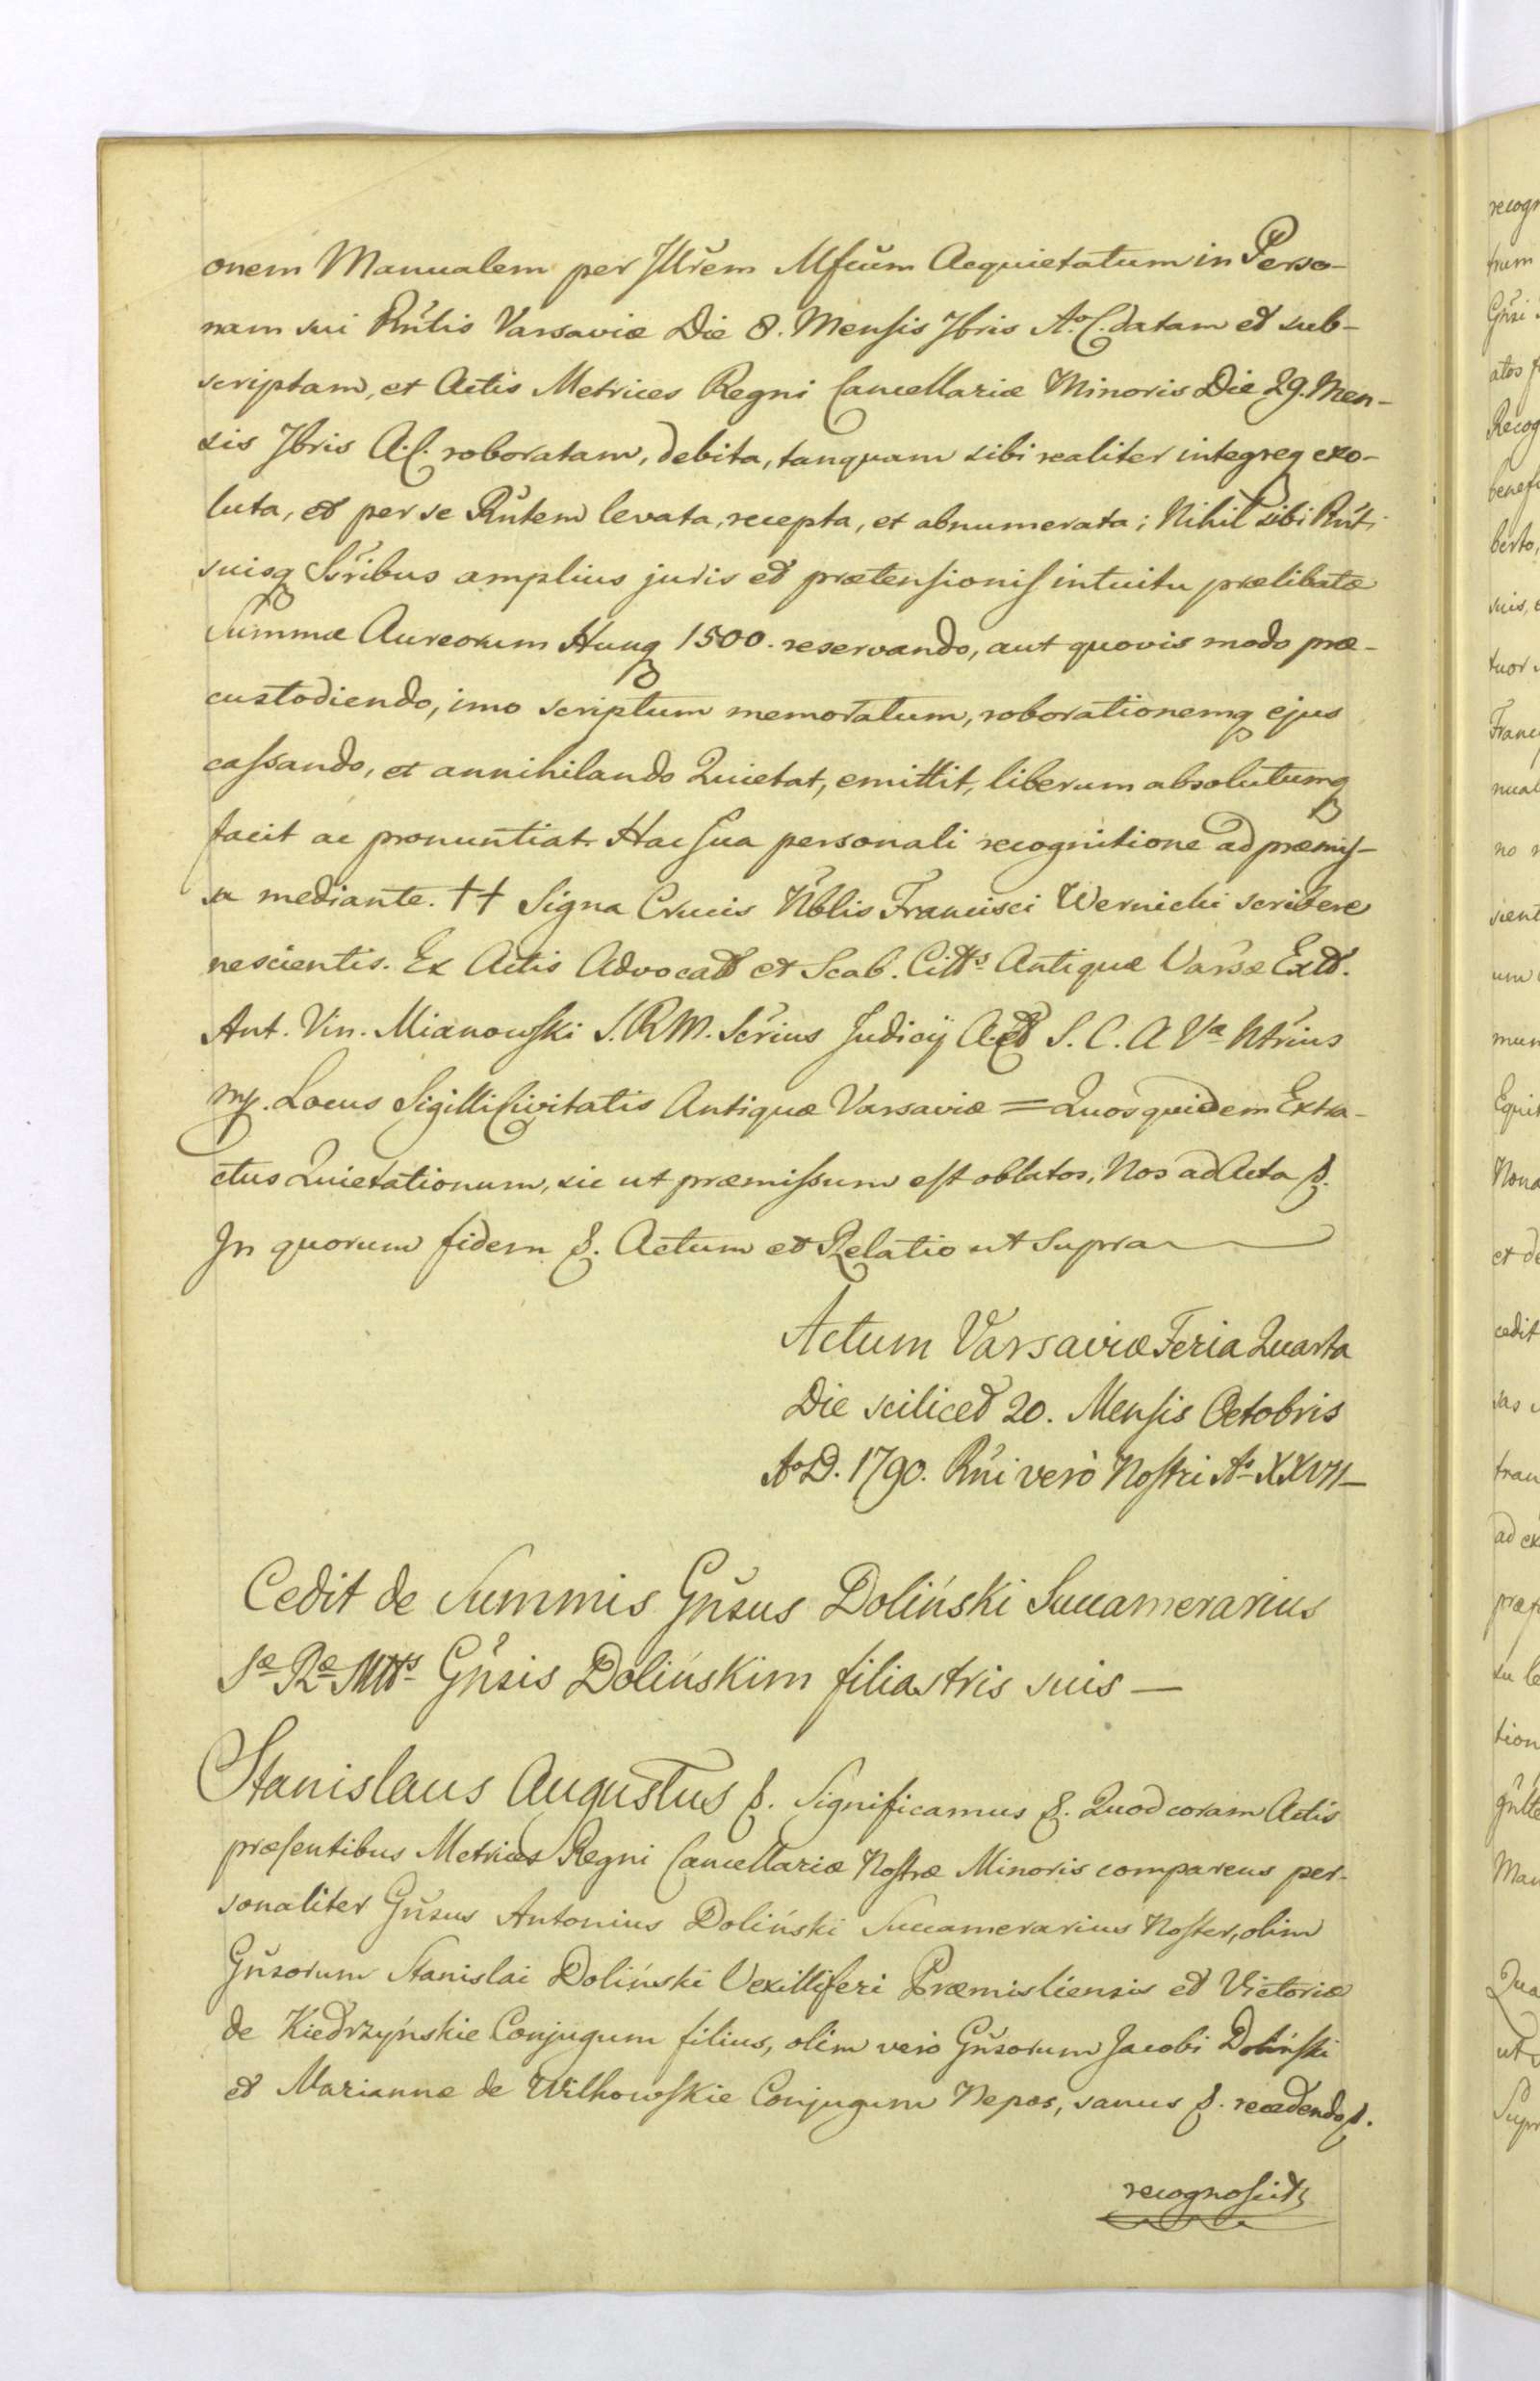 onem Manualem per Jllrem Mfcum Acquietatum in Perso-
nam sui Rntis Varsaviæ Die 8. Mensis 7bris Aº C. datam et sub-
scriptam, et Actis Metrices Regni Cancellariæ Minoris Die 29. Men-
sis 7bris A. C. roboratam, debita, tanquam sibi realiter integreq exo-
luta, et per se Rntem levata, recepta, et abnumerata; Nihil sibi Rnti
suisq Ssribus amplius juris et prætensionis intuitu prælibatæ
Summæ Aureorum Hung 1500. reservando, aut quovis modo præ-
custodiendo, imo scriptum memoratum, roborationemq ejus
cassando, et annihilando Quietat, emittit, liberum absolutumq
facit ac pronuntiat. Hac sua personali recognitione ad præmis-
sa mediante. †† Signa Crucis Nblis Francisci Wernicki scribere
nescientis. Ex Actis Advocatt et Scab. Citts Antiquæ Varsæ Extt.
Ant. Vin. Mianowski S. R M. Scrius Judicÿ A. et S. C. A Va Ntrius
mp. Locus Sigilli Civitatis Antiquæ Varsaviæ = Quos quidem Extra-
ctus Quietationum, sic ut præmissum est oblatos, Nos ad Acta p.
In quorum fidem p. Actum et Relatio ut Supra
Actum Varsaviæ Feria Quarta
Die scilicet 20. Mensis Octobris
Aº D. 1790. Rni verò Nostri Aº XXVII
Cedit de Summis Gnsus Doliński Succamerarius
Sæ Ræ Mtts Gnsis Dolińskim filiastris suis —
Stanislaus Augustus p. Significamus p. Quod coram Actis
præsentibus Metrices Regni Cancellariæ Nostræ Minoris comparens per-
sonaliter Gnsus Antonius Doliński Succamerarius Noster, olim
Gnsorum Stanislai Doliński Vexilliferi Præmisliensis et Victoriæ
de Kiedrzyńskie Conjugum filius, olim verò Gnsorum Jacobi Doliński
et Mariannæ de Wilkowskie Conjugum Nepos, sanus p. recedendo p.
recognoscit
recogn
Gnsi
atos
Recog
benefi
berto,
suis,
tuor
Franc
nual
no
sient
um
mun
Equit
Nona
et de
cedit
sas
tran
ad ex
præ
su le
tion
Man
Qua
ut
Supr